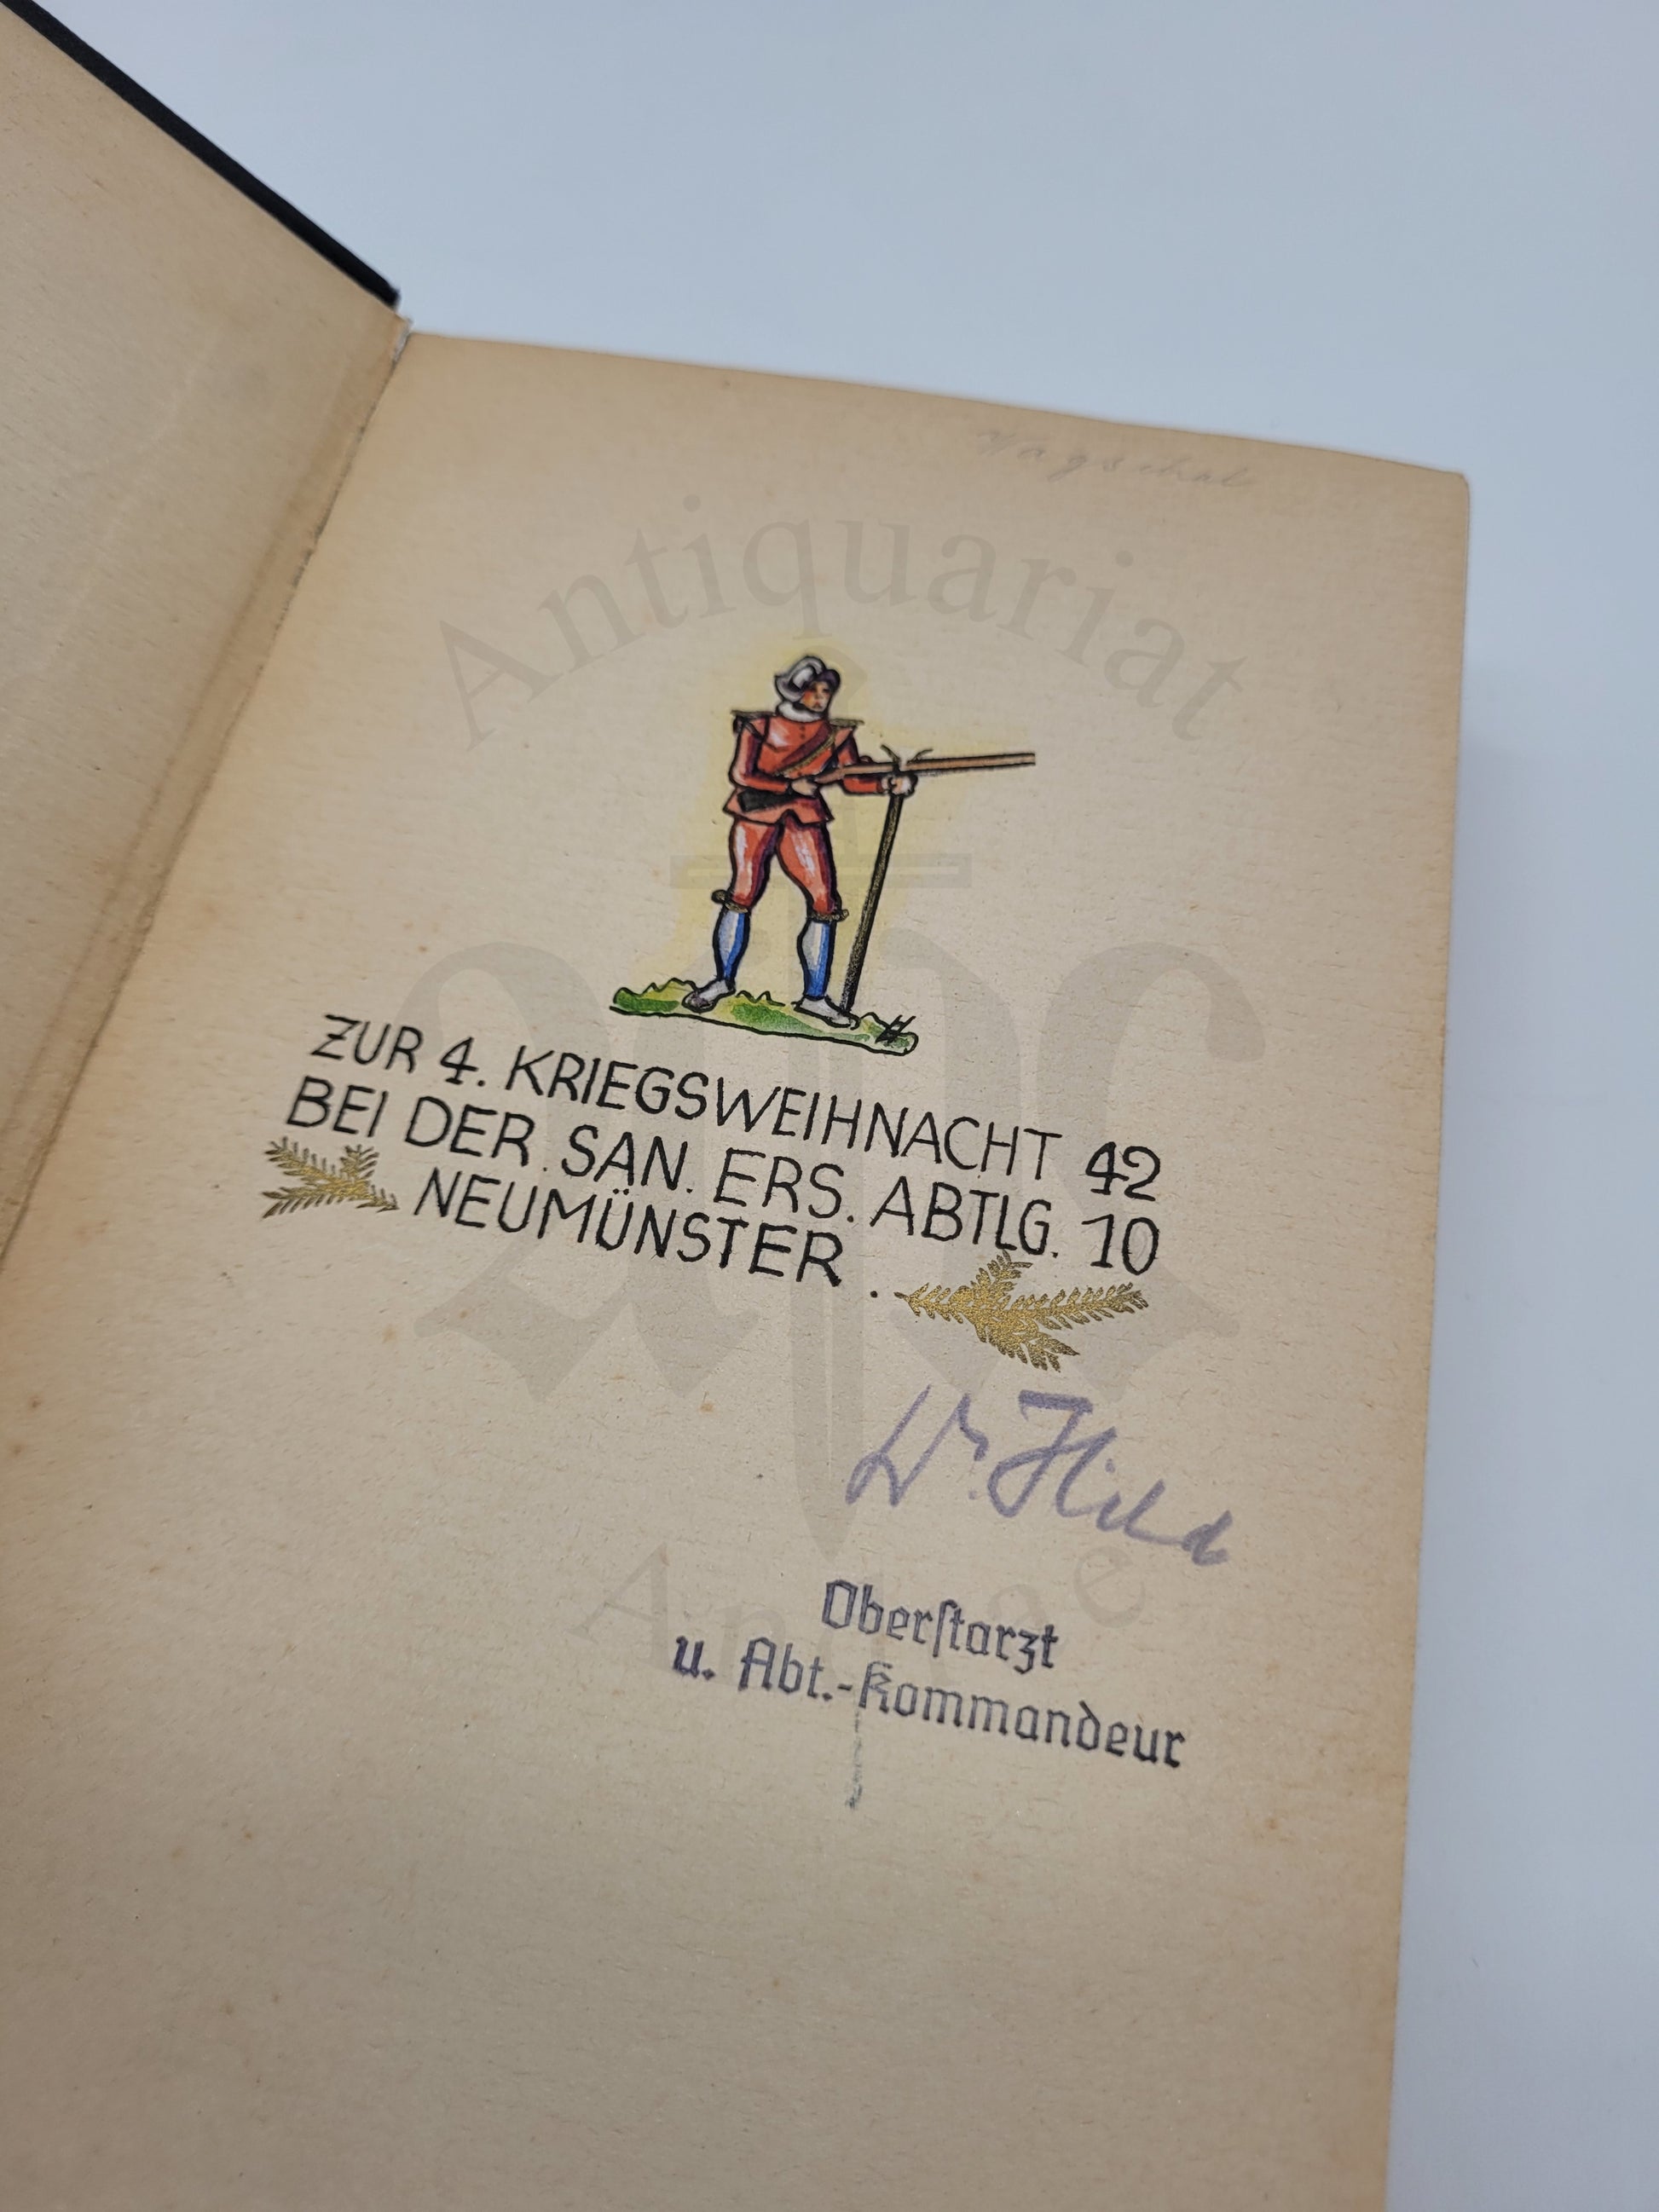 Wagschal
Antiquariat
ZUR 4. KRIEGSWEIHNACHT 42
BEI DER SAN. ERS. ABTLG. 10
NEUMÜNSTER.
Dr. Hild
Andreae
Oberſtarzt
u. Abt.-Kommandeur